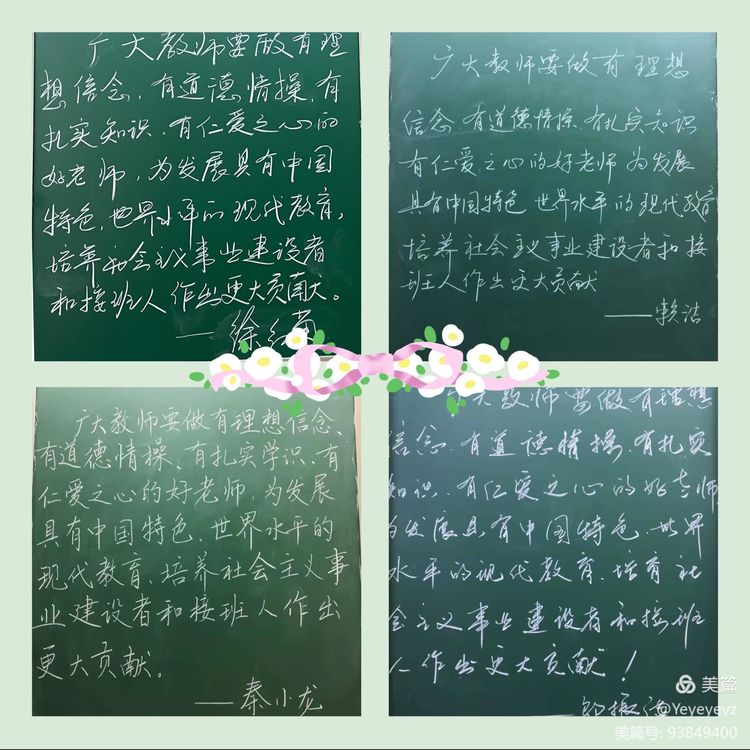 广大教师要做有理
想信念,有道德情操,有
扎实知识,有仁爱之心的
好老师,为发展具有中国
特色,世界水平的现代教育,
培养和会主义事业建设者
和接班人作出更大贡献。
——徐红菊
广大教师要做有理想
信念、有道德情操、有扎实知识
有仁爱之心的好老师 为发展
具有中国特色 世界水平的现代教育
培养社会主义事业建设者和接
班人作出更大贡献
——赖洁
广大教师要做有理想信念
有道德情操、有扎实学识、有
仁爱之心的好老师,为发展
具有中国特色、世界水平的
现代教育、培养社会主义事
业建设者和接班人作出
更大贡献。
——秦小龙
广大教师要做有理想
信念,有道德情操,有扎实
知识,有仁爱之心的好老师
为发展具有中国特色,世界
水平的现代教育,培育社
会主义事业建设者和接班
人作出更大贡献!
美篇
@Yeyeyeyz
美篇号: 93849400